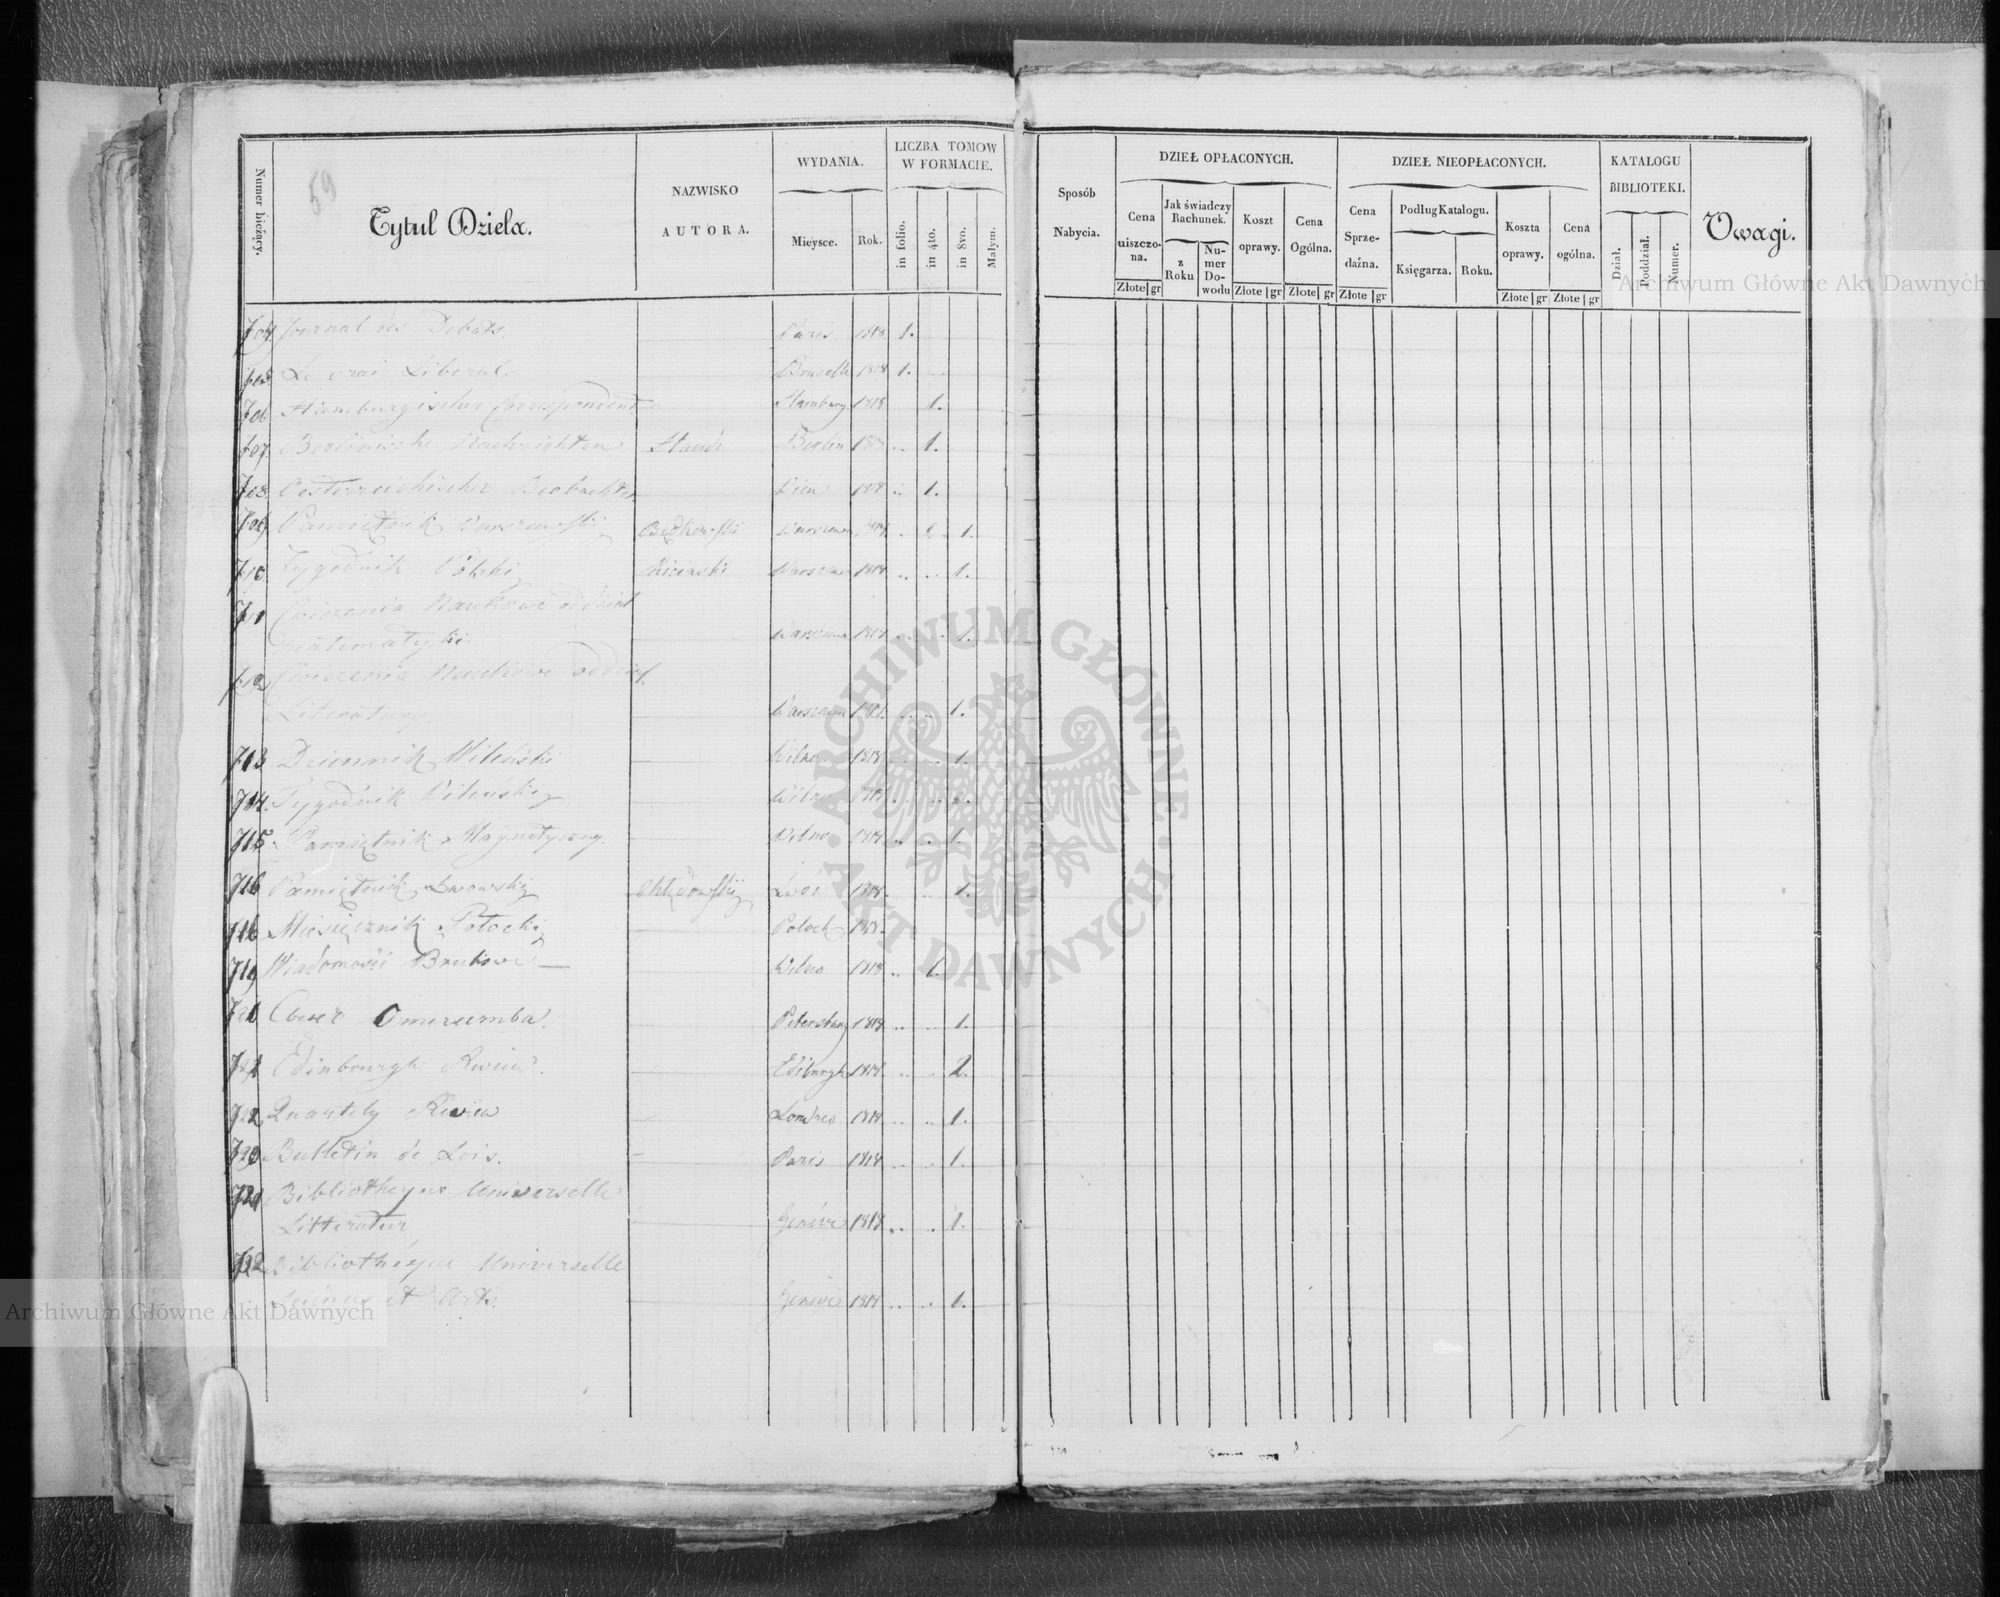 59
Numer bieżący.
Tytuł Dzieła.
NAZWISKO
AUTORA.
WYDANIA.
Mieysce.
Rok.
LICZBA TOMOW
W FORMACIE.
in folio.
in 4to.
in 8vo.
Małym.
Sposób
Nabycia.
DZIEŁ OPŁACONYCH.
Cena
uiszczo-
na.
Złote gr
Jak świadczy
Rachunek.
z
Roku
Nu-
mer
Do-
wodu
Koszt
oprawy.
Złote gr
Cena
Ogólna.
Złote gr
DZIEŁ NIEOPŁACONYCH.
Cena
Sprze-
daźna.
Złote gr
Podług Katalogu.
Księgarza.
Roku.
Koszta
oprawy.
Złote gr
Cena
ogólna.
Złote gr
KATALOGU
BIBLIOTEKI.
Dział.
Poddział.
Numer.
Uwagi.
704 Journal des Debats. Paris 1818 1.
705 Le vrai Liberal. Bruxelle 1818 1.
706 Hamburgischer Correspondent Hamburg 1818 1.
707 Berlinische Nachrichten Berlin 1818 1.
708 Oesterreichischer Beobachter Wien 1818 1.
709 Pamiętnik Warszawski Warszawa 1818 1.
710 Tygodnik Polski Kiciński Warszawa 1818 1.
711 Cwiczenia Naukowe oddział
Matematyki Warszawa 1818 1.
712 Cwiczenia Naukowe oddział
Literatury. Warszawa 1818 1.
713 Dziennik Wileński Wilno 1818 1.
714. Tygodnik Wileński Wilno 1818 1.
715 Pamiętnik Magnetyczny. Wilno 1818 1.
716 Pamiętnik Lwowski Chłędowski Lwów 1818 1.
Miesięcznik Połocki Połock 1818.
719 Wiadomości Brukowe Wilno 1818 1.
Petersburg 1819 1.
721 Edinbourgh Rewiew. Ediburgh 1818 2.
722 Quartely Rewiew Londres 1818 1.
Bulletin de Lois. Paris 1818 1.
Bibliotheque Universelle
Litteratur Genéve 1818 1.
Bibliothéque Universelle
Sciences et Arts. Genéve 1818 1.
Archiwum Główne Akt Dawnych
Archiwum Główne Akt Dawnych
ARCHIWUM GŁÓWNE AKT DAWNYCH